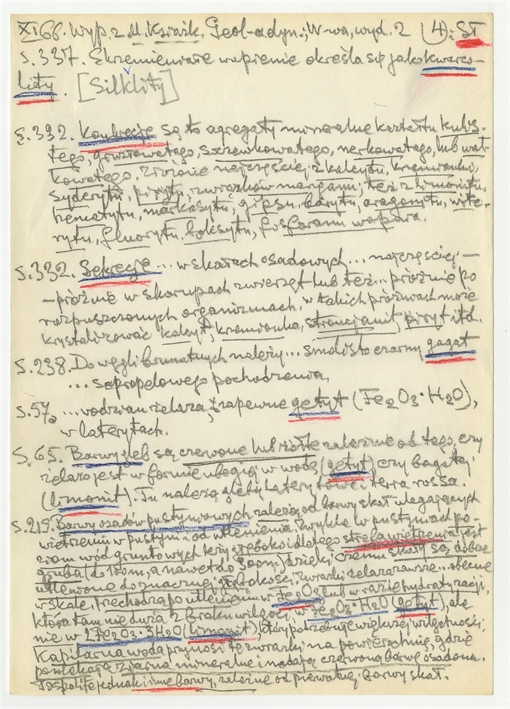 XI66. Wyp. z M. Książk. Geol. dyn.; W-wa, wyd. 2 (4): St
s. 337. Skrzemieniałe wapienie określa się jako kwarco-
lity. [Silklity]
s. 392. Konkrecje są to agregaty mineralne kształtu kulis-
tego, groniastego, soczewkowatego, nerkowatego, lub wał-
kowatego. Złożone najczęściej z kalcytu, krzemionki,
syderytu, pirytu, związków manganu, też z limonitu,
hematytu, markasytu, gipsu, barytu, aragonitu, wite-
rytu, fluorytu, boksytu, fosforanu wapnia.
s. 332. Sekrecje ... w skałach osadowych ... najczęściej -
- próżnie w skorupach zwierząt lub też ... próżnie po
rozpuszczonych organizmach. w takich próżniach może
krystalizować kalcyt, krzemionka, stroncjanit, piryt itd.
s. 238. Do węgli brunatnych należy ... smolisto czarny gagat
... sapropelowego pochodzenia.
s. 57. ... wodzian żelaza, zapewne getyt (Fe2O3·H2O),
w laterytach.
s. 65. Barwy gleb są czerwone lub żółte zależnie od tego, czy
żelazo jest w formie ubogiej w wodę (getyt) czy bogatej
(limonit). Tu należą gleby laterytowe i terra rossa.
s. 215. Barwy osadów pustynnych zależą od barwy skał ulegających
wietrzeniu w pustyni i od utlenienia. Zwykle w pustyniach po-
ziom wód gruntowych leży głęboko i dlatego strefa wietrzenia jest
gruba, do 100m, a nawet do 300m, dzięki czemu skały są dobrze
utlenione do znacznej głębokości. Związki żelaza zawarte ... obecne
w skale, przechodzą po utlenieniu w Fe2O3 lub w razie hydratyzacji,
która tam nie duża z braku wilgoci, w Fe2O3·H2O (getyt), ale
nie w 2Fe2O3·3H2O (limonit), który potrzebuje większej wilgotności.
Kapilarna woda przynosi te związki na powierzchnię, gdzie
powlekają ziarna mineralne i nadają czerwoną barwę osadom.
Pospolite jednak i inne barwy, zależne od pierwotnej barwy skał.